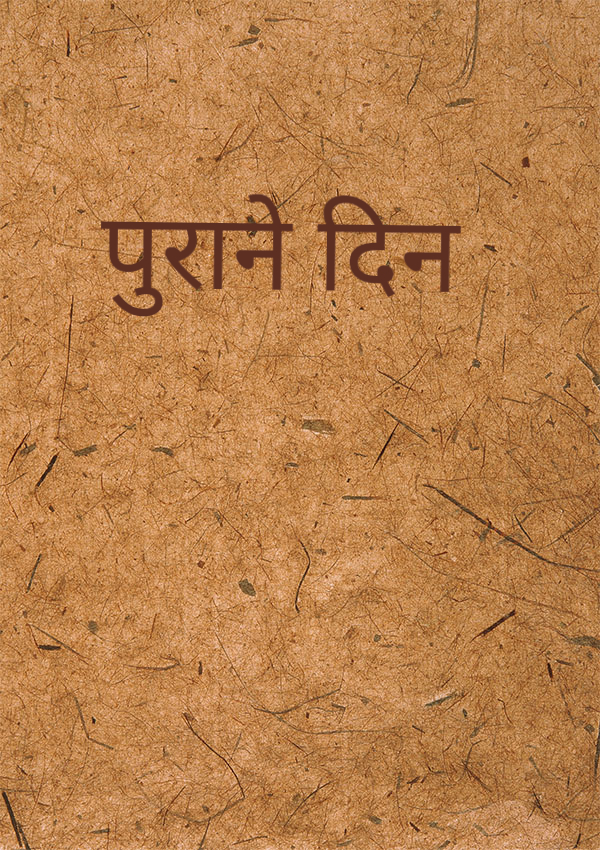 पुराने दिन